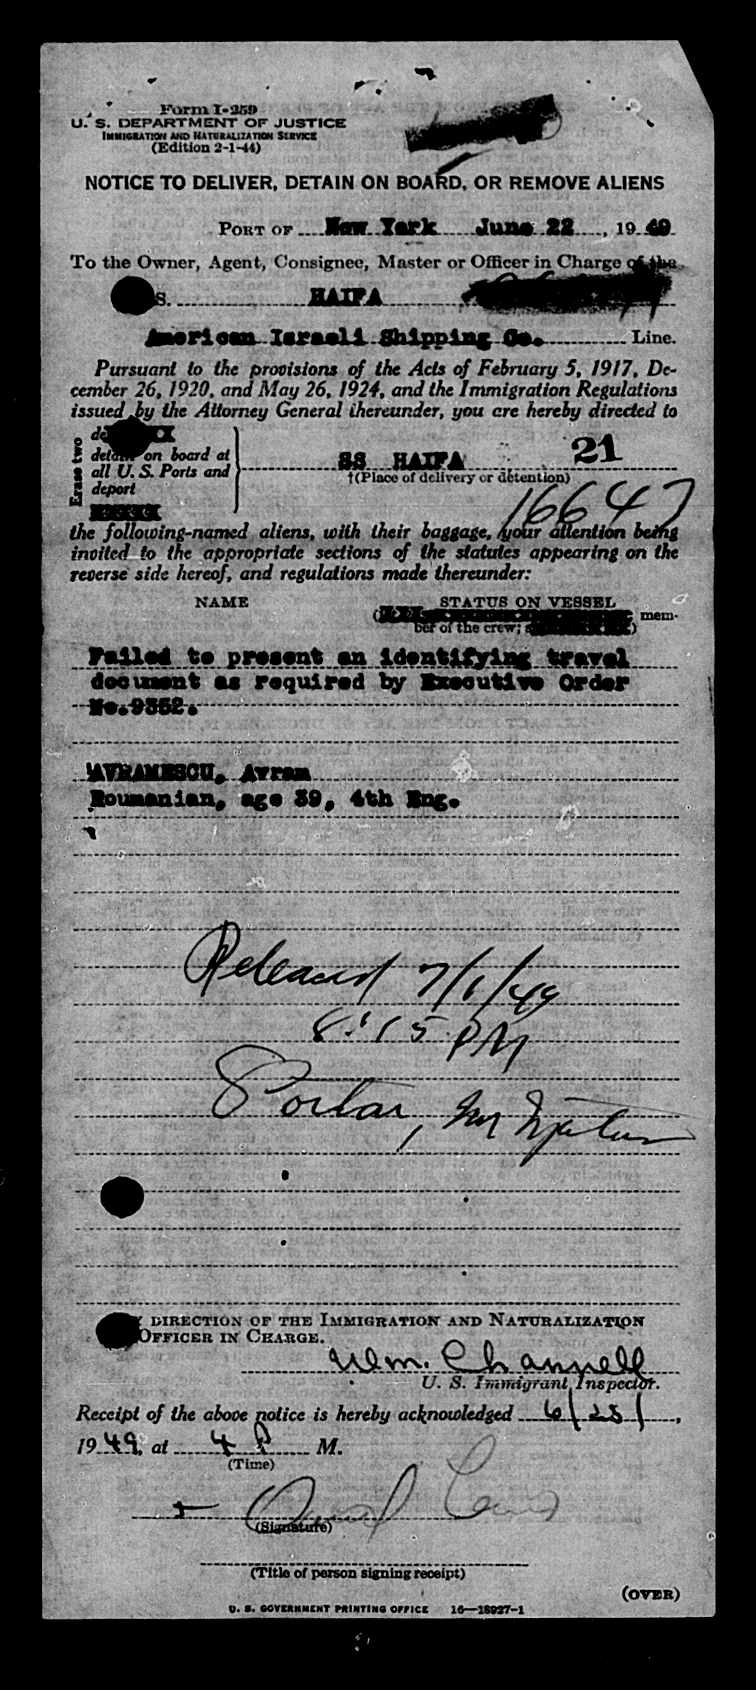 Form I-259
U. S. DEPARTMENT OF JUSTICE
IMMIGRATION AND NATURALIZATION SERVICE
(Edition 2-1-44)
NOTICE TO DELIVER, DETAIN ON BOARD, OR REMOVE ALIENS
PORT OF New York June 22, 1949
To the Owner, Agent, Consignee, Master or Officer in Charge of the
S. HAIFA
American Israeli Shipping Co. Line.
Pursuant to the provisions of the Acts of February 5, 1917, De-
cember 26, 1920, and May 26, 1924, and the Immigration Regulations
issued by the Attorney General thereunder, you are hereby directed to
Erase two
detain on board at
all U. S. Ports and
deport
SS HAIFA 21
†(Place of delivery or detention)
16647
the following-named aliens, with their baggage, your attention being
invited to the appropriate sections of the statutes appearing on the
reverse side hereof, and regulations made thereunder:
NAME STATUS ON VESSEL
( mem-
ber of the crew; )
Failed to present an identifying travel
document as required by Executive Order
No.9352.
AVRAMESCU, Avram
Roumanian, age 39, 4th Eng.
Released 7/1/49
8:15 PM
DIRECTION OF THE IMMIGRATION AND NATURALIZATION
OFFICER IN CHARGE.
Wm. Channell
U. S. Immigrant Inspector.
Receipt of the above notice is hereby acknowledged 6/25/,
1949, at 4 P M.
(Time)
(Signature)
(Title of person signing receipt)
(OVER)
U. S. GOVERNMENT PRINTING OFFICE 16—18927-1